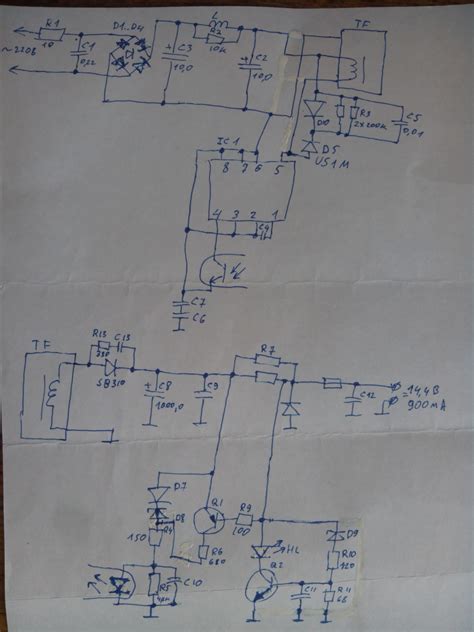 R1
10
~220В
C1
0,22
D1..D4
C3
10,0
L
R2
10к
C2
10,0
TF
D10
R3
2x200к
C5
0,01
D5
US1M
IC1
8 7 6 5
4 3 2 1
C4
C7
C6
TF
R13
C13
SB310
C8
1000,0
C9
R7
C12
=14,4В
900мА
D7
D8
24
150
Q1
R9
100
R6
680
HL
Q2
D9
R10
120
R5
C10
C11
R11